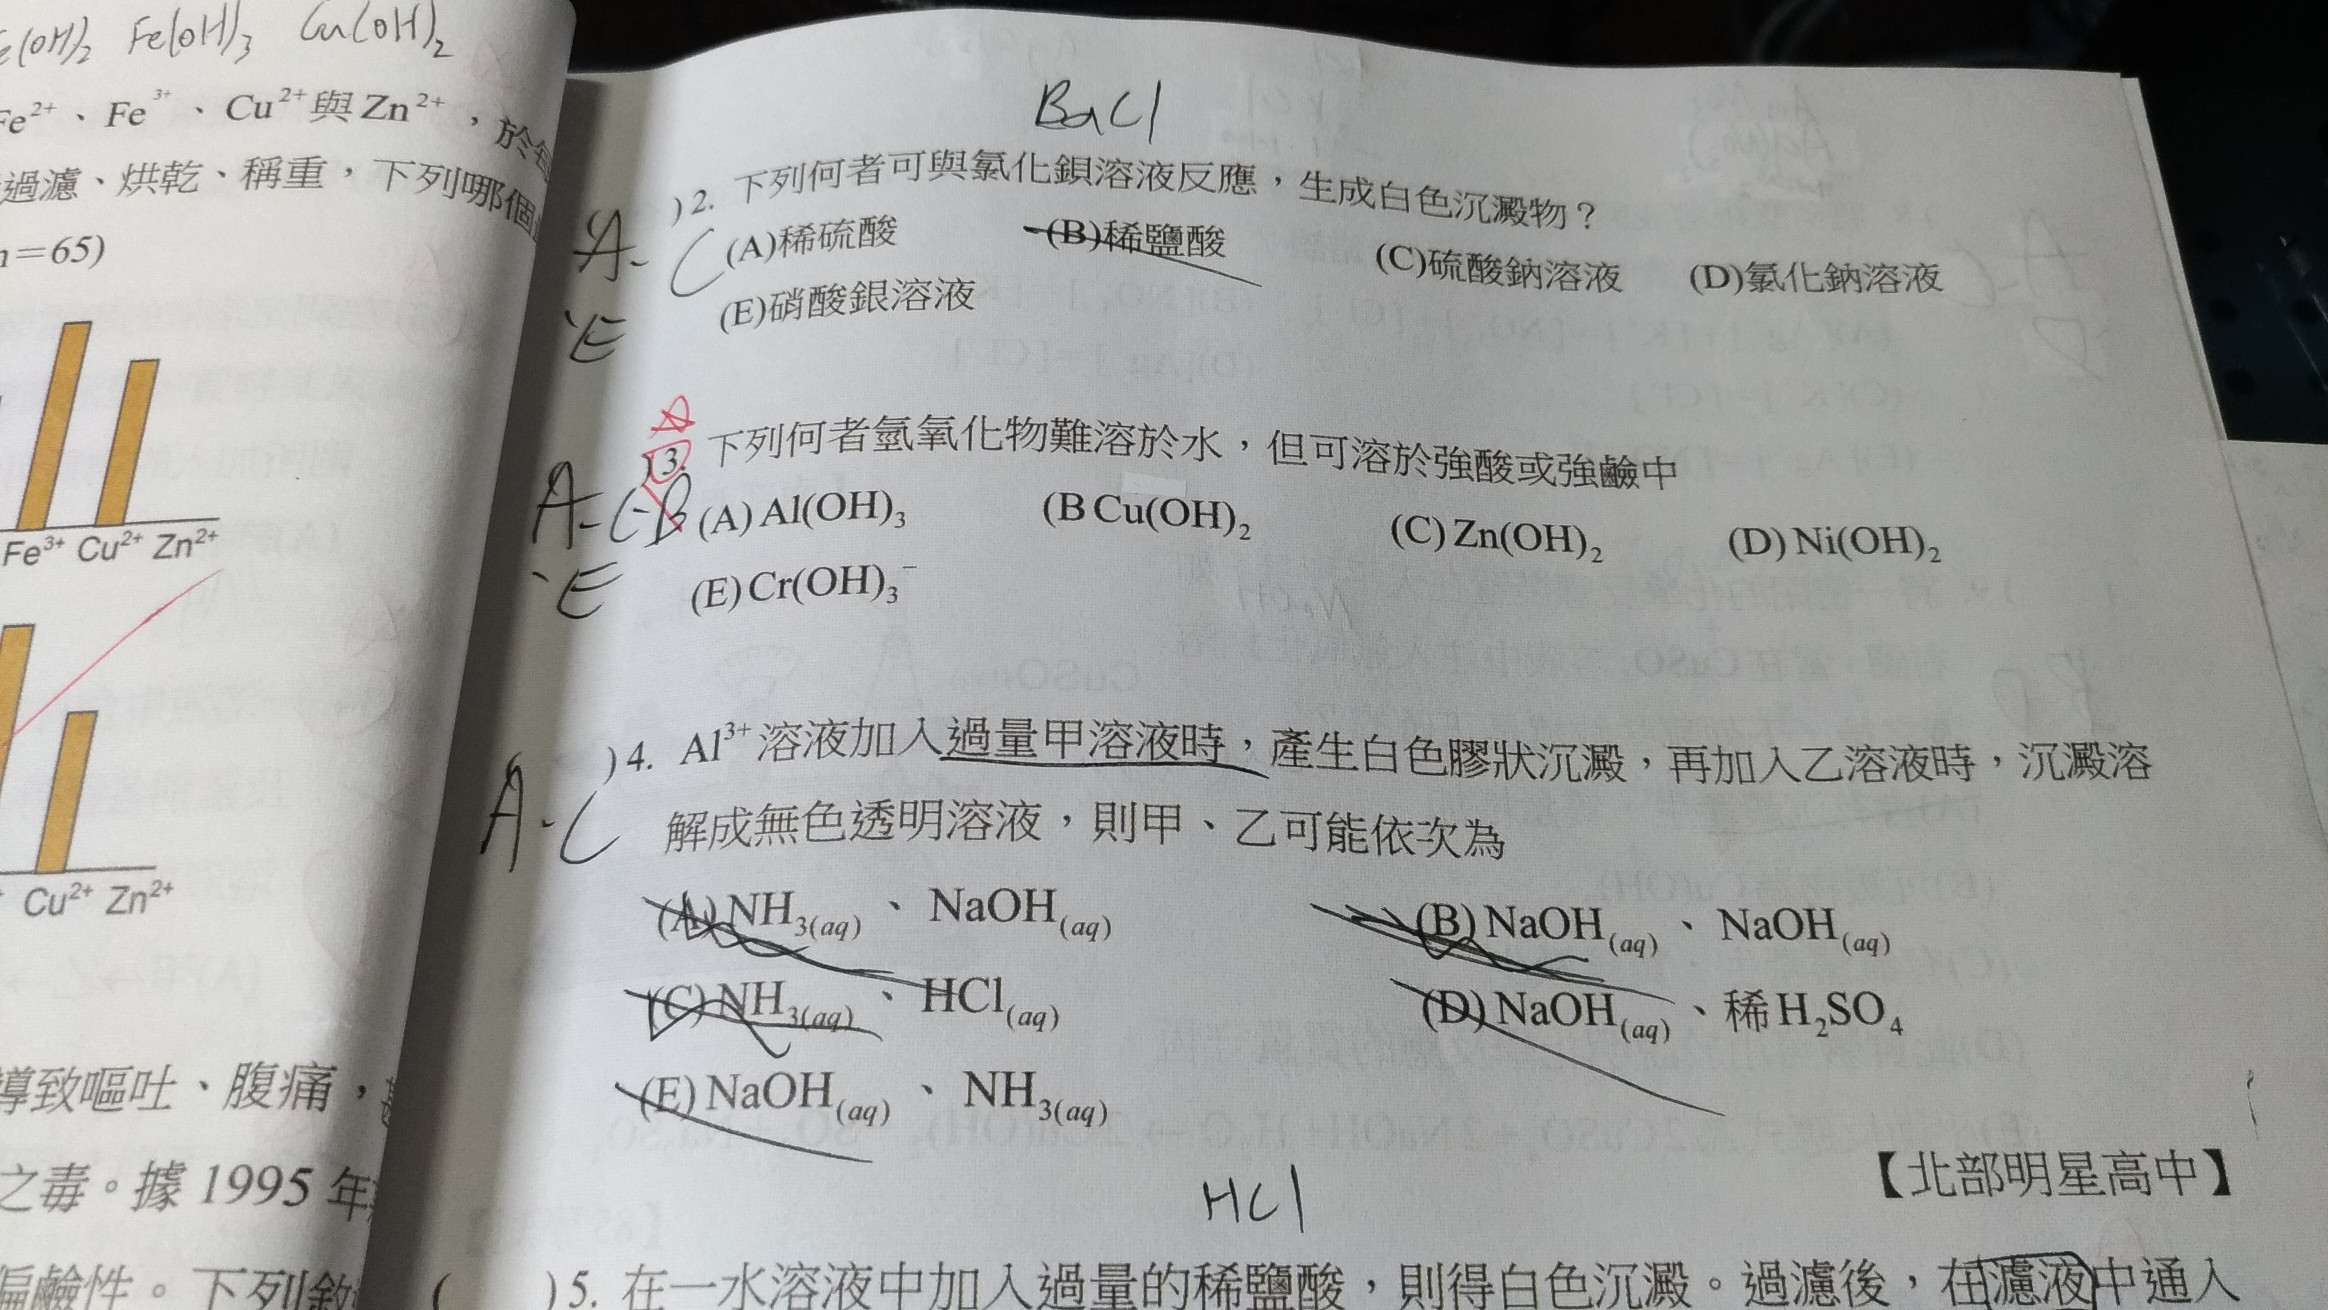 Fe(OH)3 Cu(OH)2
Fe²⁺、Fe³⁺、Cu²⁺與Zn²⁺，於
過濾、烘乾、稱重，下列哪個
n＝65)
Fe³⁺ Cu²⁺ Zn²⁺
Cu²⁺ Zn²⁺
導致嘔吐、腹痛，
之毒。據 1995 年
偏鹼性。下列敘
BaCl
)2. 下列何者可與氯化鋇溶液反應，生成白色沉澱物？
A、C
(A)稀硫酸 (B)稀鹽酸 (C)硫酸鈉溶液 (D)氯化鈉溶液
、E
(E)硝酸銀溶液
)3. 下列何者氫氧化物難溶於水，但可溶於強酸或強鹼中
A、C、B
(A) Al(OH)₃ (B Cu(OH)₂ (C) Zn(OH)₂ (D) Ni(OH)₂
、E
(E) Cr(OH)₃⁻
)4. Al³⁺溶液加入過量甲溶液時，產生白色膠狀沉澱，再加入乙溶液時，沉澱溶
A、C
解成無色透明溶液，則甲、乙可能依次為
(A) NH₃(aq)、NaOH(aq) (B) NaOH(aq)、NaOH(aq)
(C) NH₃(aq)、HCl(aq) (D) NaOH(aq)、稀H₂SO₄
(E) NaOH(aq)、NH₃(aq)
【北部明星高中】
HCl
( )5. 在一水溶液中加入過量的稀鹽酸，則得白色沉澱。過濾後，在濾液中通入